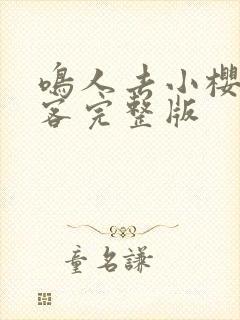 鳴人去小櫻
客完整版
童名謙